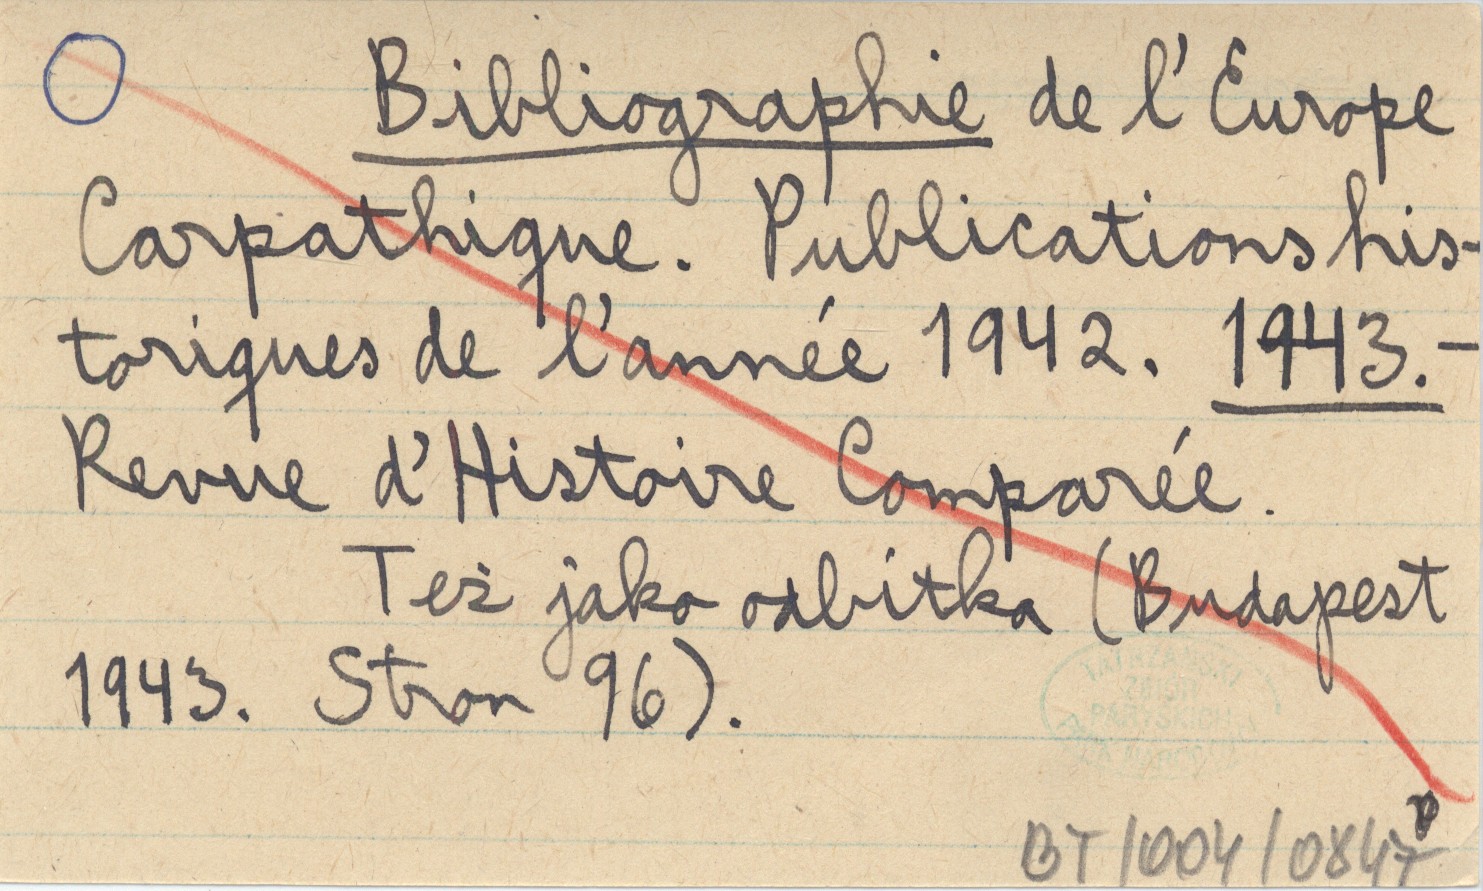 Bibliographie de l'Europe
Carpathique. Publications his-
toriques de l'année 1942. 1943.-
Revue d'Histoire Comparée.
Też jako odbitka (Budapest
1943. Stron 96).
TATRZAŃSKI
ZBIÓR
PARYSKICH
BT/004/0847